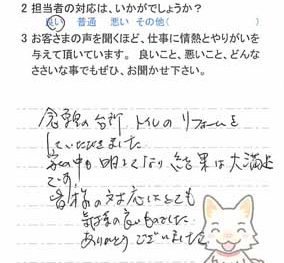 2 担当者の対応は、いかがでしょうか？
良い 普通 悪い その他(　　　　　)
3 お客さまの声を聞くほど、仕事に情熱とやりがいを
与えて頂いています。良いこと、悪いこと、どんな
ささいな事でもぜひ、お聞かせ下さい。
念願の台所 トイレのリフォームを
していただきました
家の中も明るくなり 結果は大満足
です。
皆様の対応はとても
気持の良いものでした
ありがとうございました